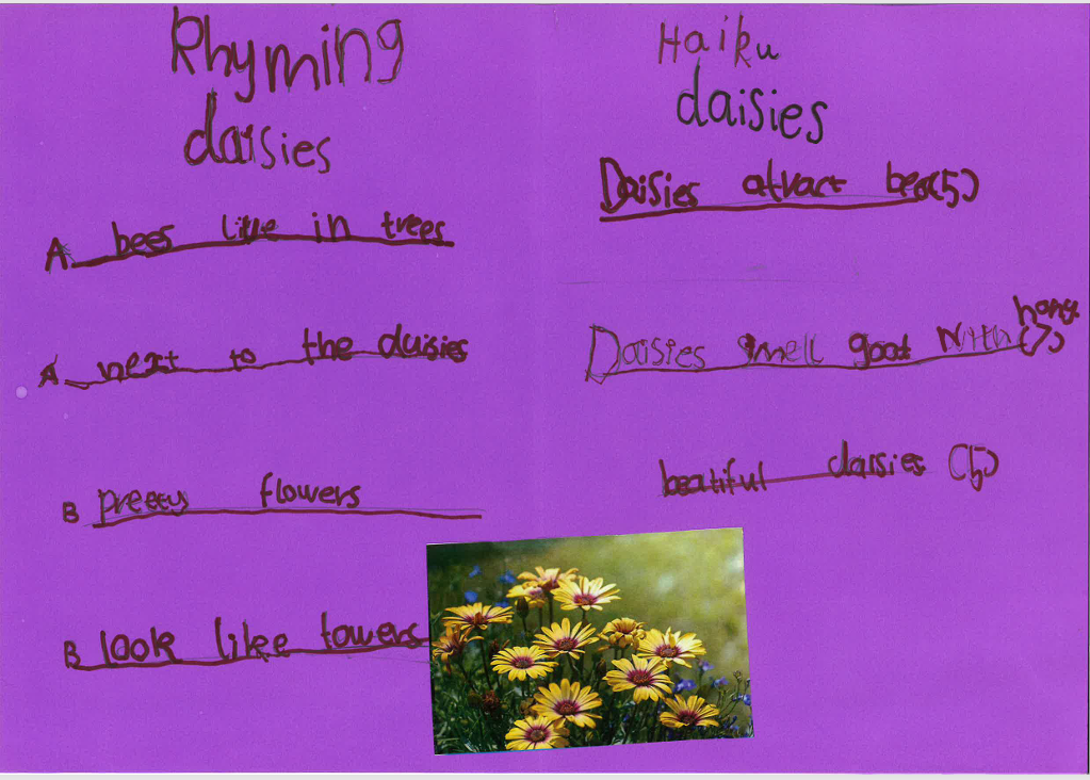 Rhyming
daisies
A bees live in trees
A next to the daisies
B pretty flowers
B look like towers
Haiku
daisies
Daisies attract bees(5)
Daisies smell good with honey (7)
beatiful daisies (5)